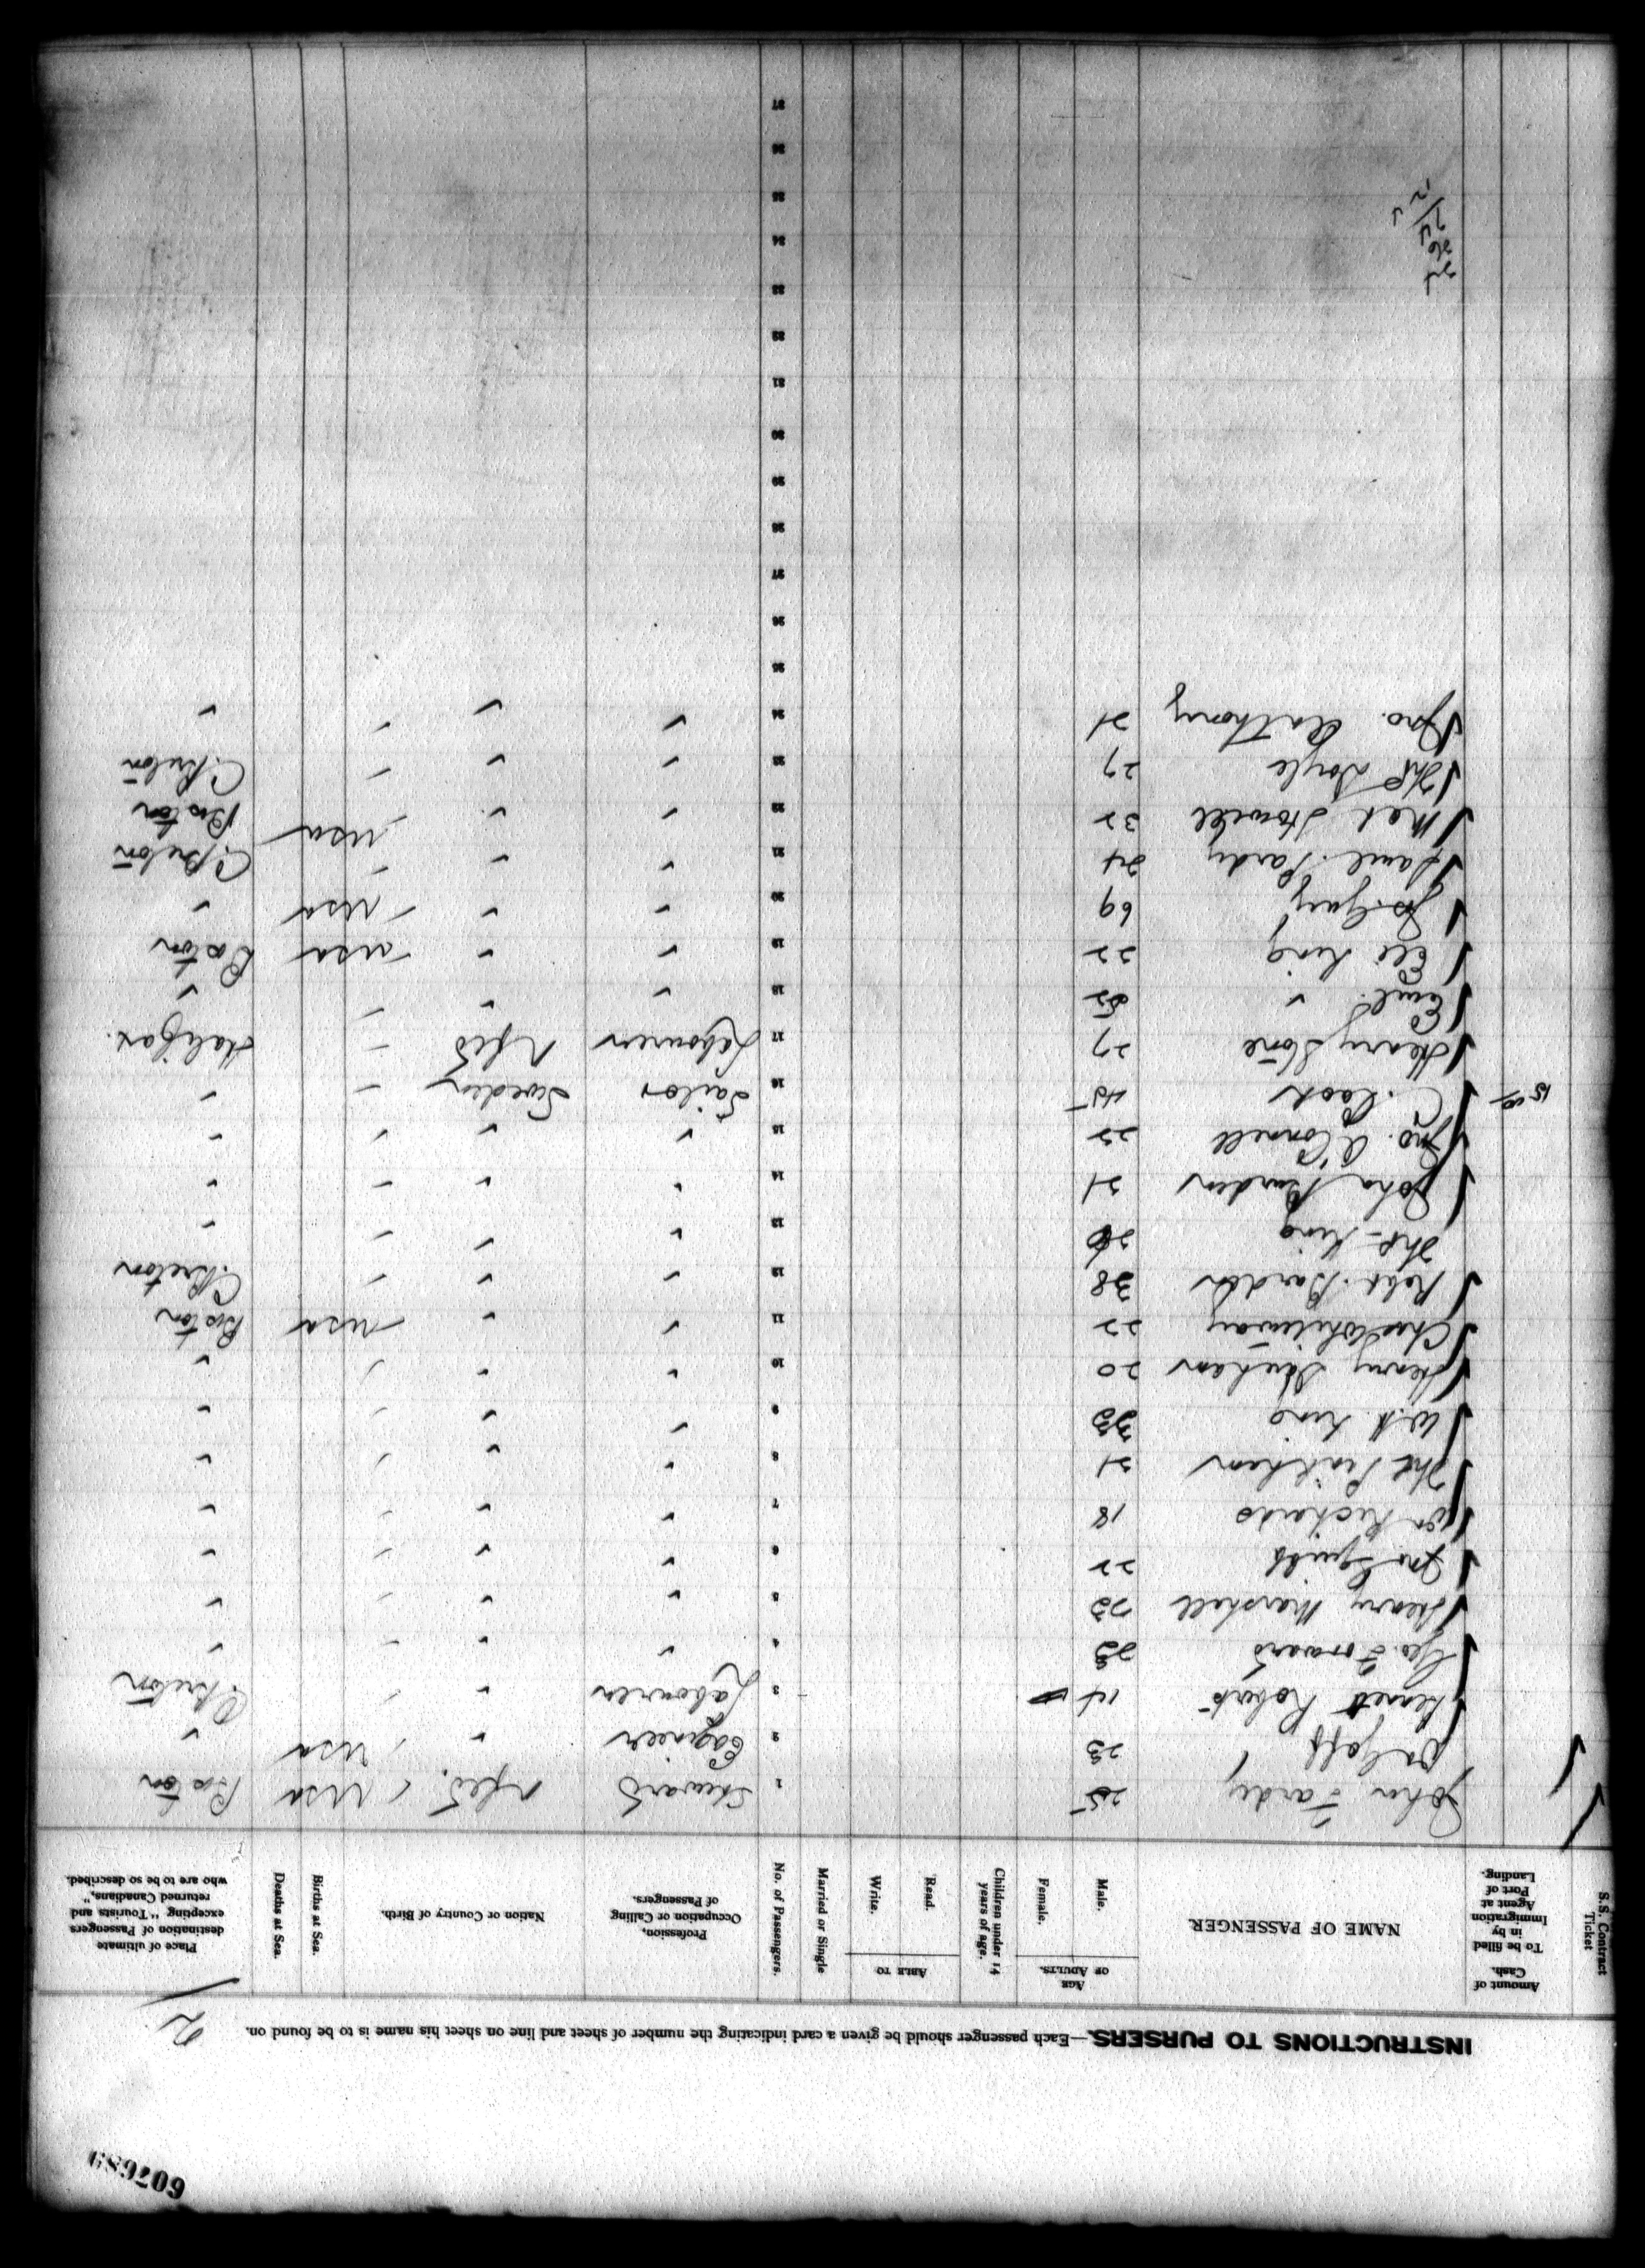 607689
INSTRUCTIONS TO PURSERS.—Each passenger should be given a card indicating the number of sheet and line on sheet his name is to be found on. 2
S.S. Contract Ticket
Amount of Cash. To be filled in by Immigration Agent at Port of Landing.
NAME OF PASSENGER
AGE OF ADULTS. Male. Female.
Children under 14 years of age.
ABLE TO Read. Write.
Married or Single
No. of Passengers.
Profession, Occupation or Calling of Passengers.
Nation or Country of Birth.
Births at Sea.
Deaths at Sea.
Place of ultimate destination of Passengers excepting "Tourists and returned Canadians," who are to be so described.
John Fardy 25 1 Steward Nfld. USA Boston
Goff 23 2 Engineer " USA "
Kenneth Roberts 14 3 Labourer " C. Breton
Geo. Forward 23 4 " " "
Henry Marshall 22 5 " " "
Jno Squibb 22 6 " " "
Richards 18 7 " " "
Penthean 21 8 " " "
W. King 33 9 " " "
Henry 20 10 " " "
Chas Whiteway 22 11 " " USA Boston
Robt. Bardon 38 12 " " C. Breton
King 13 " " "
John Burden 21 14 " " "
Jno. O'Connell 22 15 " " "
15 00 C. Cook 45 16 Sailor Sweden "
Henry Stone 27 17 Labourer Nfld Halifax.
" 52 18 " " "
Eli King 22 19 " " USA Boston
Jos. Gary 69 20 " " USA "
Saml. Pardy 24 21 " " C. Breton
Howell 32 22 " " USA Boston
Doyle 27 23 " " C. Breton
Jno. Anthony 21 24 " " "
25
26
27
28
29
30
31
32
33
34
35
36
37